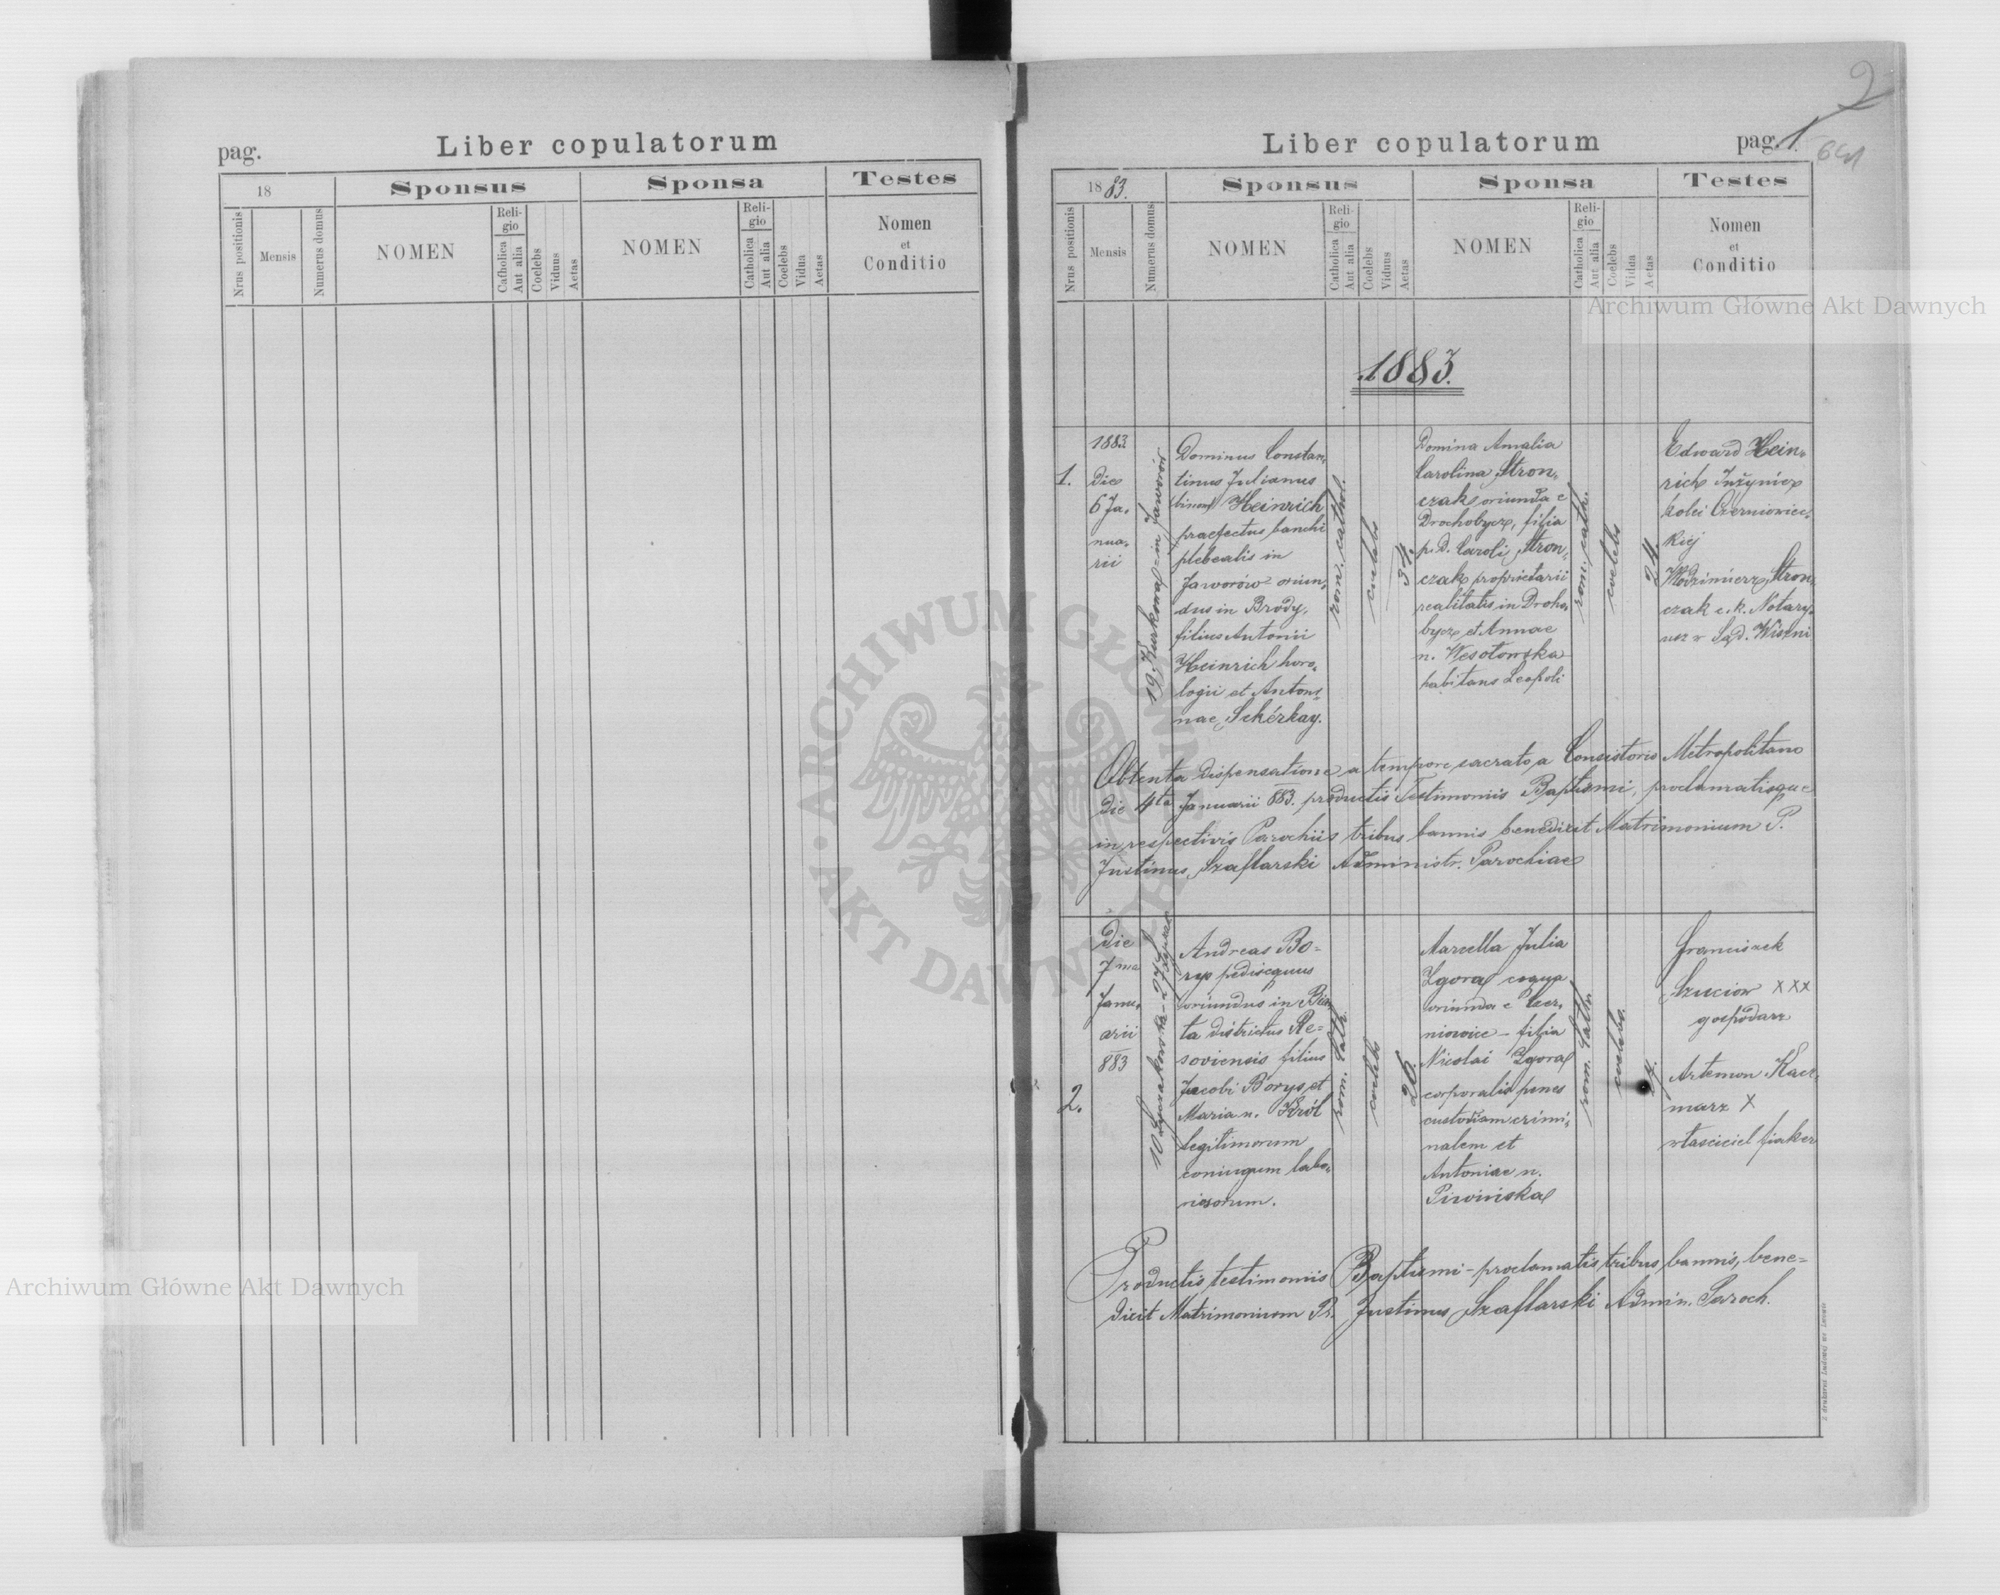 pag.
Liber copulatorum
18
Sponsus
Sponsa
Testes
Nrus positionis
Mensis
Numerus domus
NOMEN
Religio
Catholica
Aut alia
Coelebs
Viduus
Aetas
NOMEN
Religio
Catholica
Aut alia
Coelebs
Vidua
Aetas
Nomen
et
Conditio
2
Liber copulatorum
pag. 1.
1883.
Sponsus
Sponsa
Testes
Nrus positionis
Mensis
Numerus domus
NOMEN
Reli-
gio
Catholica
Aut alia
Coelebs
Viduus
Aetas
NOMEN
Reli-
gio
Catholica
Aut alia
Coelebs
Vidua
Aetas
Nomen
et
Conditio
1883.
1.
1883
die
6 Ja-
nua-
rii
19 Kurkowa in Jaworów
Dominus Constan-
tinus Julianus
Heinrich
praefectus banchi
plebealis in
Jaworów oriun-
dus in Brody,
filius Antonii
Heinrich horo-
logii et Anton-
nae Sekérkay.
rom. cathol.
coelebs
34.
Domina Amalia
Carolina Stron-
czak oriunda e
Drohobycz, filia
p. D. Caroli Stron-
czak proprietarii
realitatis in Droho-
bycz et Annae
n. Wesołowska
habitans Leopoli
rom. cath.
coelebs
24.
Edward Hein-
rich Inżynier
kolei Czerniowiec-
kiej
Włodzimierz Stron-
czak c. k. Notary-
usz w Sąd. Wiszni
Obtenta dispensatione a tempore sacrato a Consistorio Metropolitano
die 4ta Januarii 883. productis Testimoniis Baptismi, proclamatisque
in respectivis Parochiis tribus bannis benedixit Matrimonium P.
Justinus Szaflarski Administr. Parochiae
2.
Die
7ma
Janu-
arii
883
Andreas Bo-
rys pedisequus
oriundus in
ta districtus Re-
soviensis filius
Jacobi Borys et
Maria n. Król
legitimorum
coniugum labo-
riosorum.
rom. Cath.
coelebs
26.
Marcella Julia
Zgoral coqua
oriunda e Czer-
niowice - filia
Nicolai Zgoral
corporalis penes
custodiam crimi-
nalem et
Antoniae n.
Piwińska
rom. Cath.
coelebs.
Franciszek
Szuciow xxx
gospodarz
Artemon Kacz-
marz x
właściciel fiaker
Productis testimoniis Baptismi - proclamatis tribus bannis, bene-
dixit Matrimonium Pr. Justinus Szaflarski Admin. Paroch.
Z drukarni Ludowej we Lwowie
Archiwum Główne Akt Dawnych
Archiwum Główne Akt Dawnych
ARCHIWUM GŁÓWNE AKT DAWNYCH